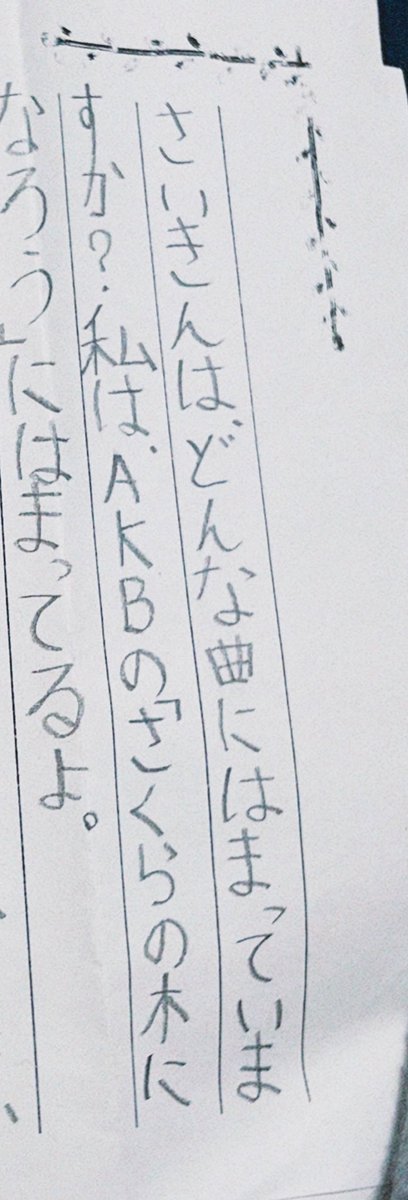 さいきんは、どんな曲にはまっていま
すか?私は、AKBの「さくらの木に
なろう」にはまってるよ。